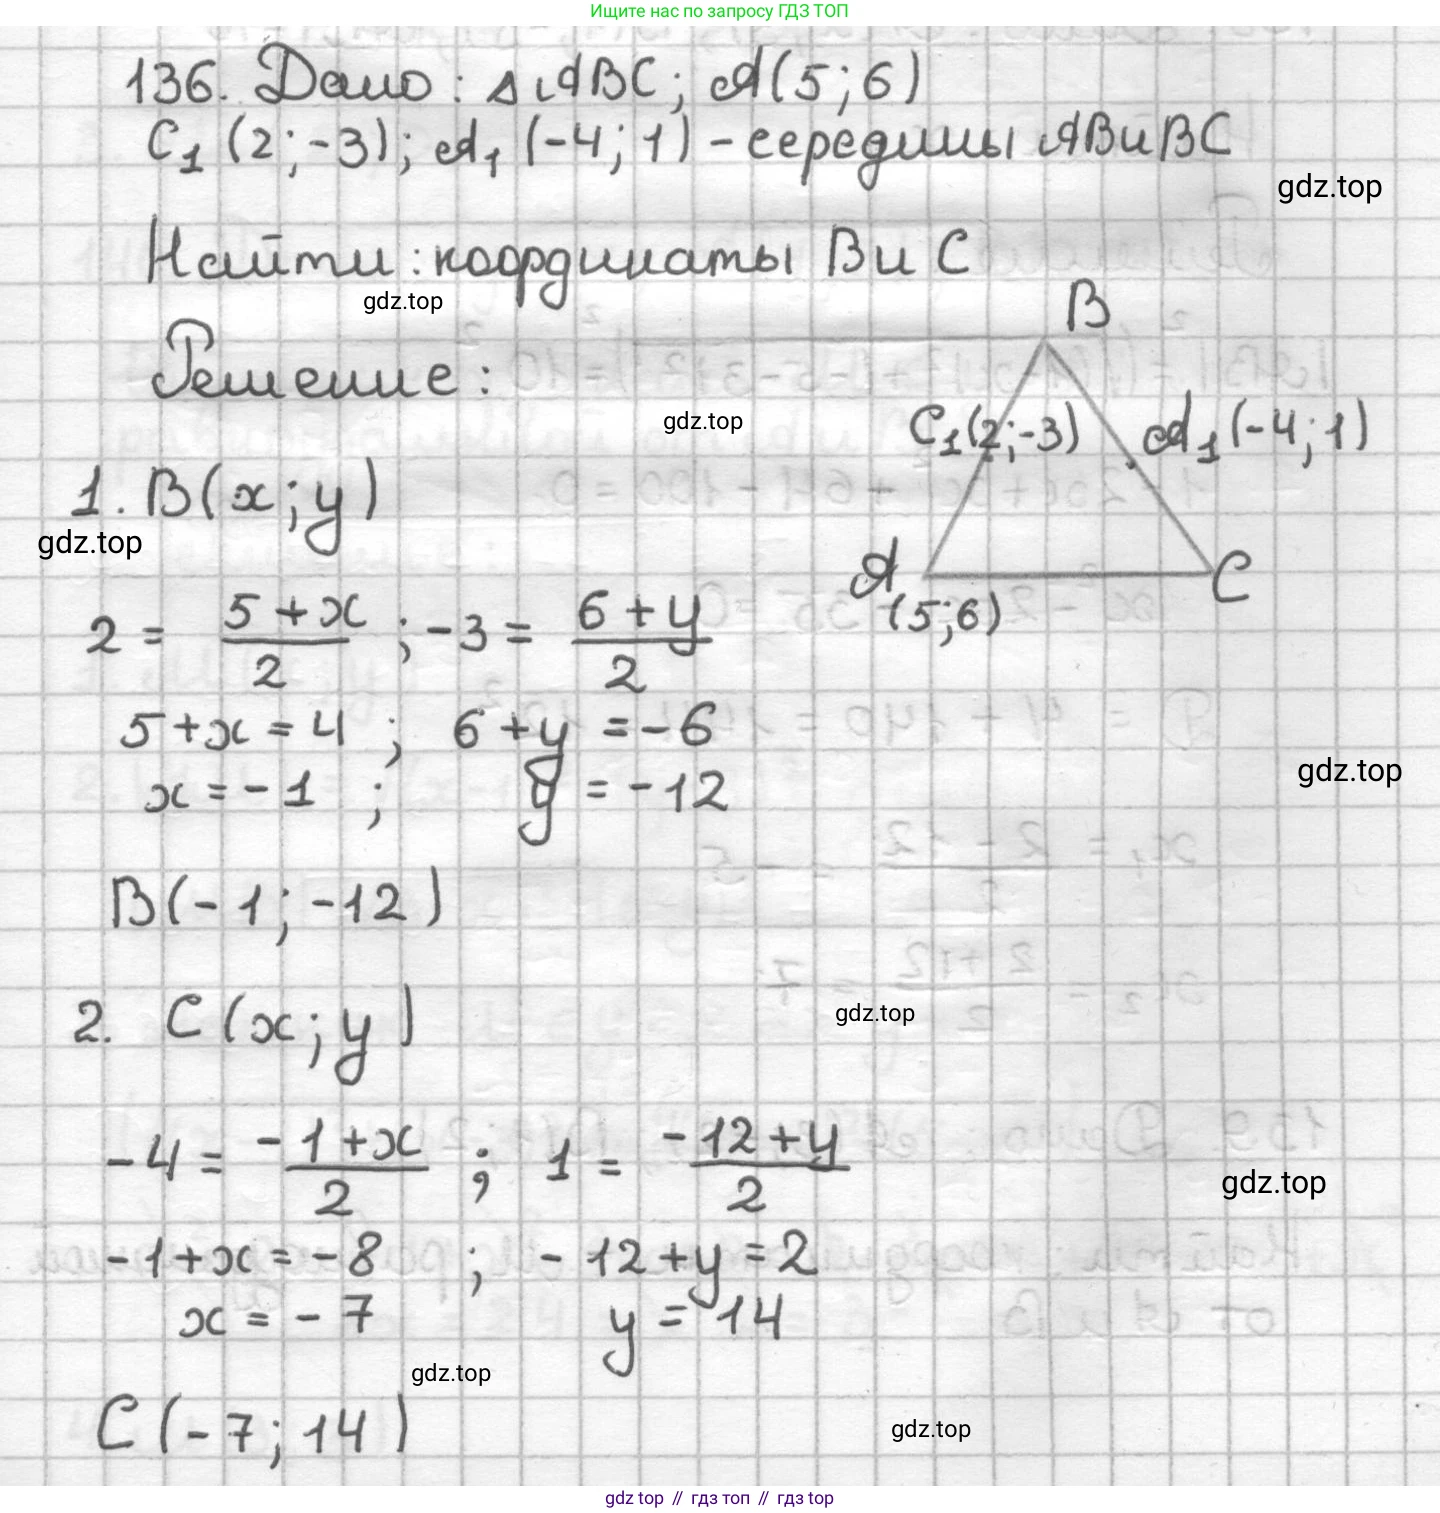 Ищите нас по запросу ГДЗ ТОП
136. Дано: △ABC; A(5;6)
C₁(2;-3); A₁(-4;1) - середины AB и BC
gdz.top
Найти: координаты B и C
gdz.top
B
Решение:
gdz.top
C₁(2;-3) A₁(-4;1)
1. B(x;y)
gdz.top
A C
(5;6)
2 = (5+x)/2 ; -3 = (6+y)/2
5+x=4 ; 6+y=-6
gdz.top
x=-1 ; y=-12
B(-1;-12)
2. C(x;y)
gdz.top
-4 = (-1+x)/2 ; 1 = (-12+y)/2
gdz.top
-1+x=-8 ; -12+y=2
x=-7 y=14
gdz.top
C(-7;14)
gdz.top
gdz top // гдз топ // гдз top